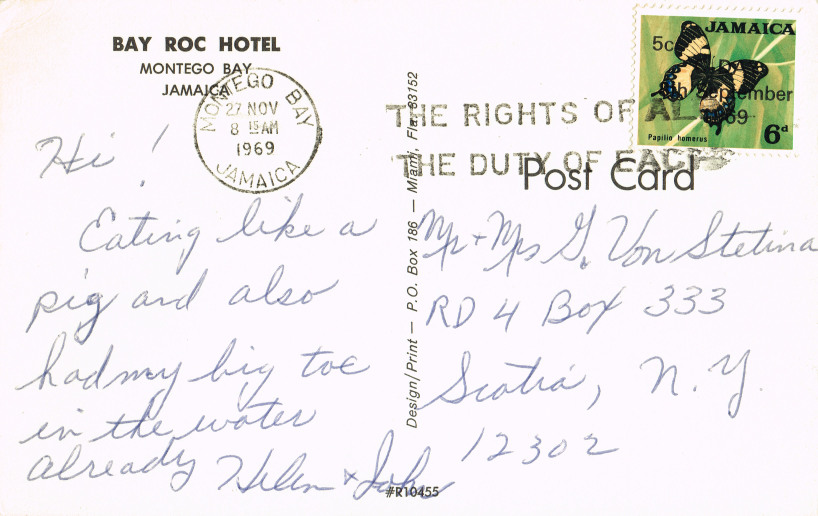 BAY ROC HOTEL
MONTEGO BAY
JAMAICA
MONTEGO BAY
27 NOV
8 15 AM
1969
JAMAICA
THE RIGHTS OF AL
THE DUTY OF EACH
JAMAICA
5c
September
69
Papilio homerus
6d
Post Card
Hi!
Eating like a
pig and also
had my big toe
in the water
already Helen & John
Design/Print — P.O. Box 186 — Miami, Fla. 33152
Mr + Mrs G. Von Stetina
RD 4 Box 333
Scotia, N.Y.
12302
#R10455